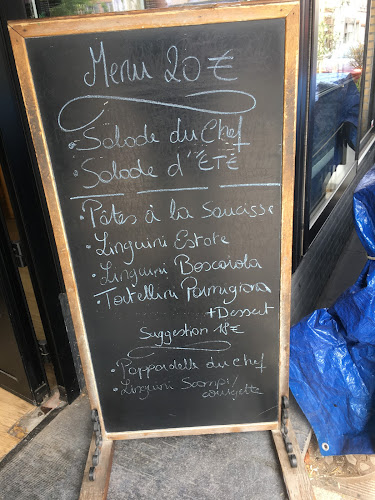 Menu 20€
• Salade du Chef
• Salade d'ÉTÉ
• Pâtes à la Saucisse
• Linguini Estate
• Linguini Boscaiola
Tortellini Parmigiana
+ Dessert
Suggestion 18€
• Pappardelle du chef
• Linguini Scampi/
courgette